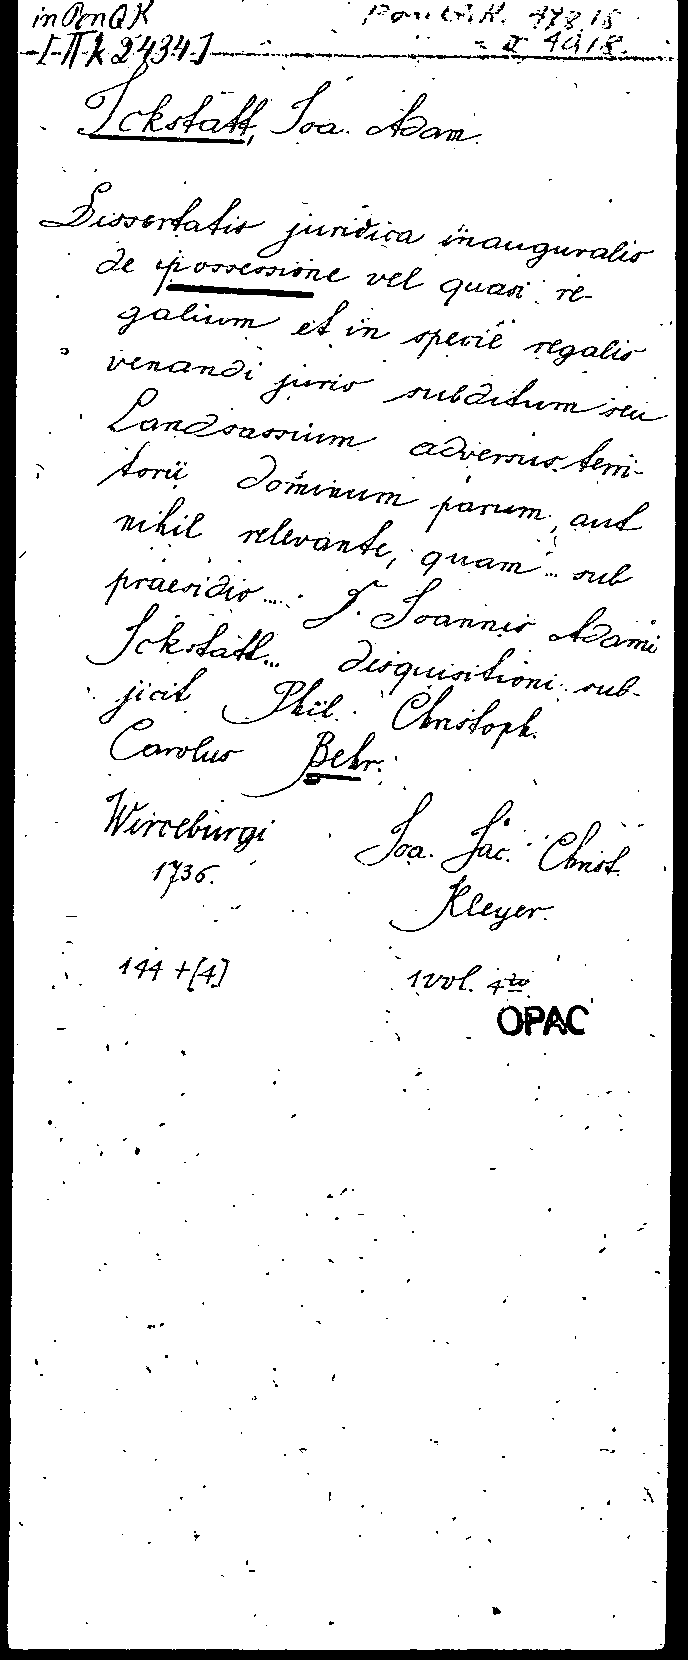 in PonQK
[-II k 2434-]
Ickstatt, Joa. Adam.
Dissertatio juridica inauguralis
de possessione vel quasi re-
galium et in specie regalis
venandi juris subditum seu
Landsassium adversus terri-
torii dominum parum, aut
nihil relevante, quam... sub
praesidio.... D. Joannis Adami
Ickstatt... disquisitioni sub-
jicit Phil. Christoph.
Carolus Behr.
Wirceburgi Joa. Jac. Christ.
1736. Kleyer.
144 + [4] 1 vol. 4to
OPAC